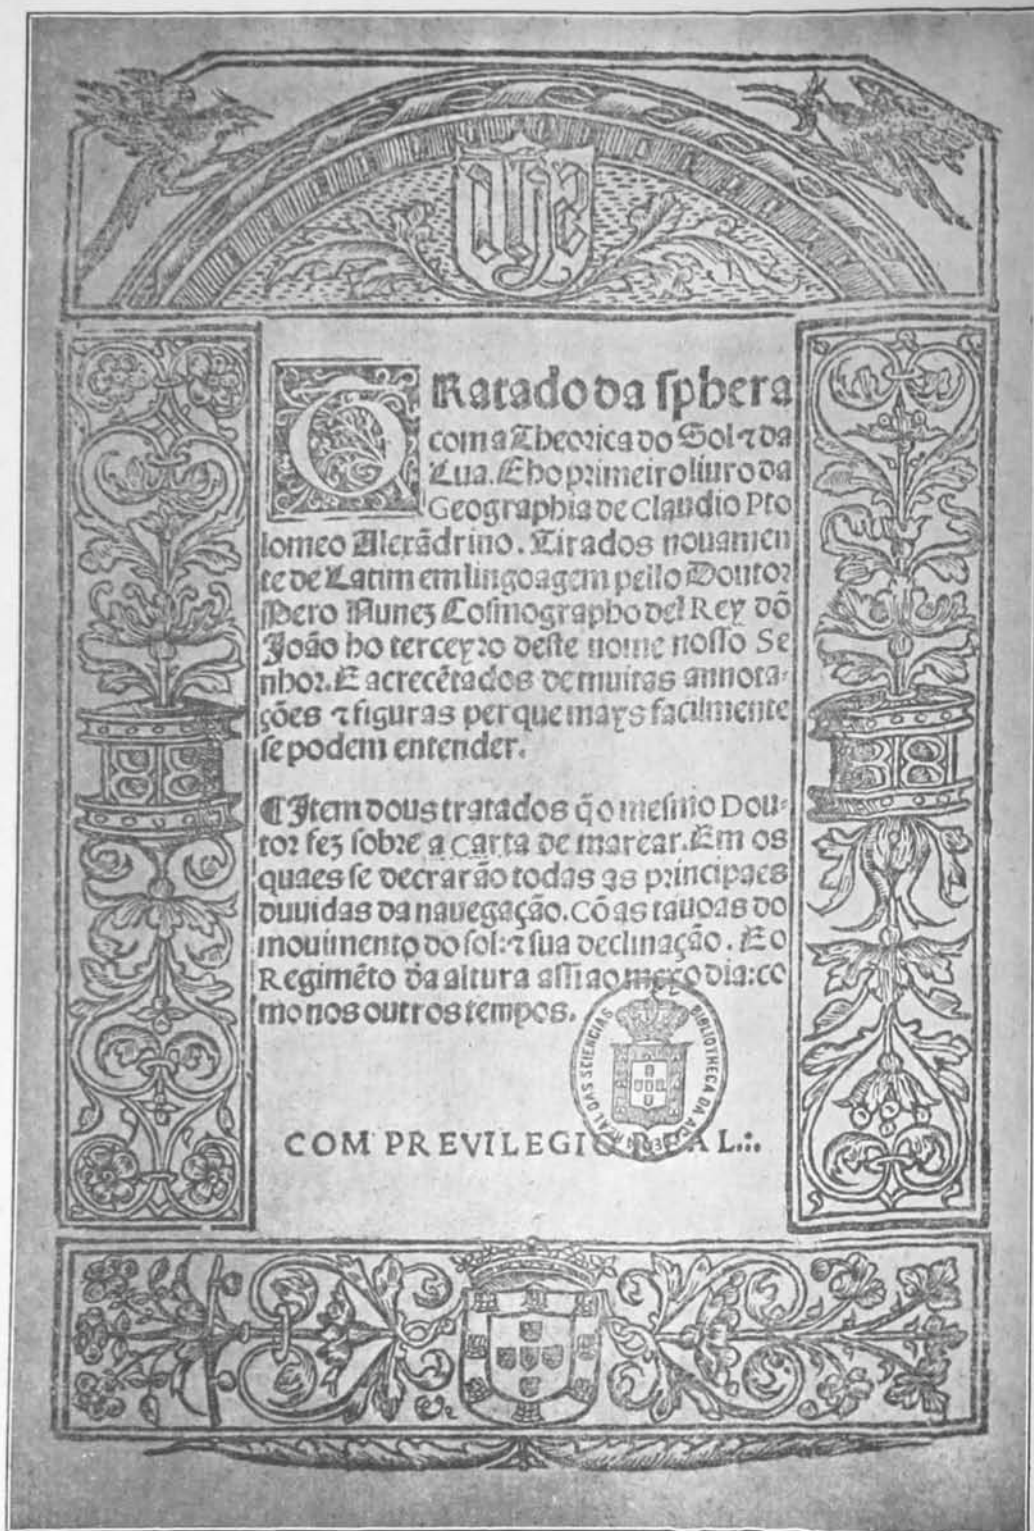 TRatado da ſphera
com a Theorica do Sol ⁊ da
Lua. E ho primeiro liuro da
Geographia de Claudio Pto
lomeo Alexãdrino. Tirados nouamen
te de Latim em lingoagem pello Doutor
Pero Nunez Coſmographo del Rey dõ
João ho terceyro deſte nome noſſo Se
nhor. E acrecẽtados de muitas annota-
ções ⁊ figuras per que mays facilmente
ſe podem entender.
¶ Item dous tratados q̃ o meſmo Dou-
tor fez ſobre a Carta de marear. Em os
quaes ſe decrarão todas as principaes
duuidas da nauegação. Cõ as tauoas do
mouimento do ſol: ⁊ ſua declinação. E o
Regimẽto da altura aſſi ao meyo dia: co
mo nos outros tempos.
COM PREVILEGIO REAL.:.
BIBLIOTHECA DA ACADEMIA REAL DAS SCIENCIAS